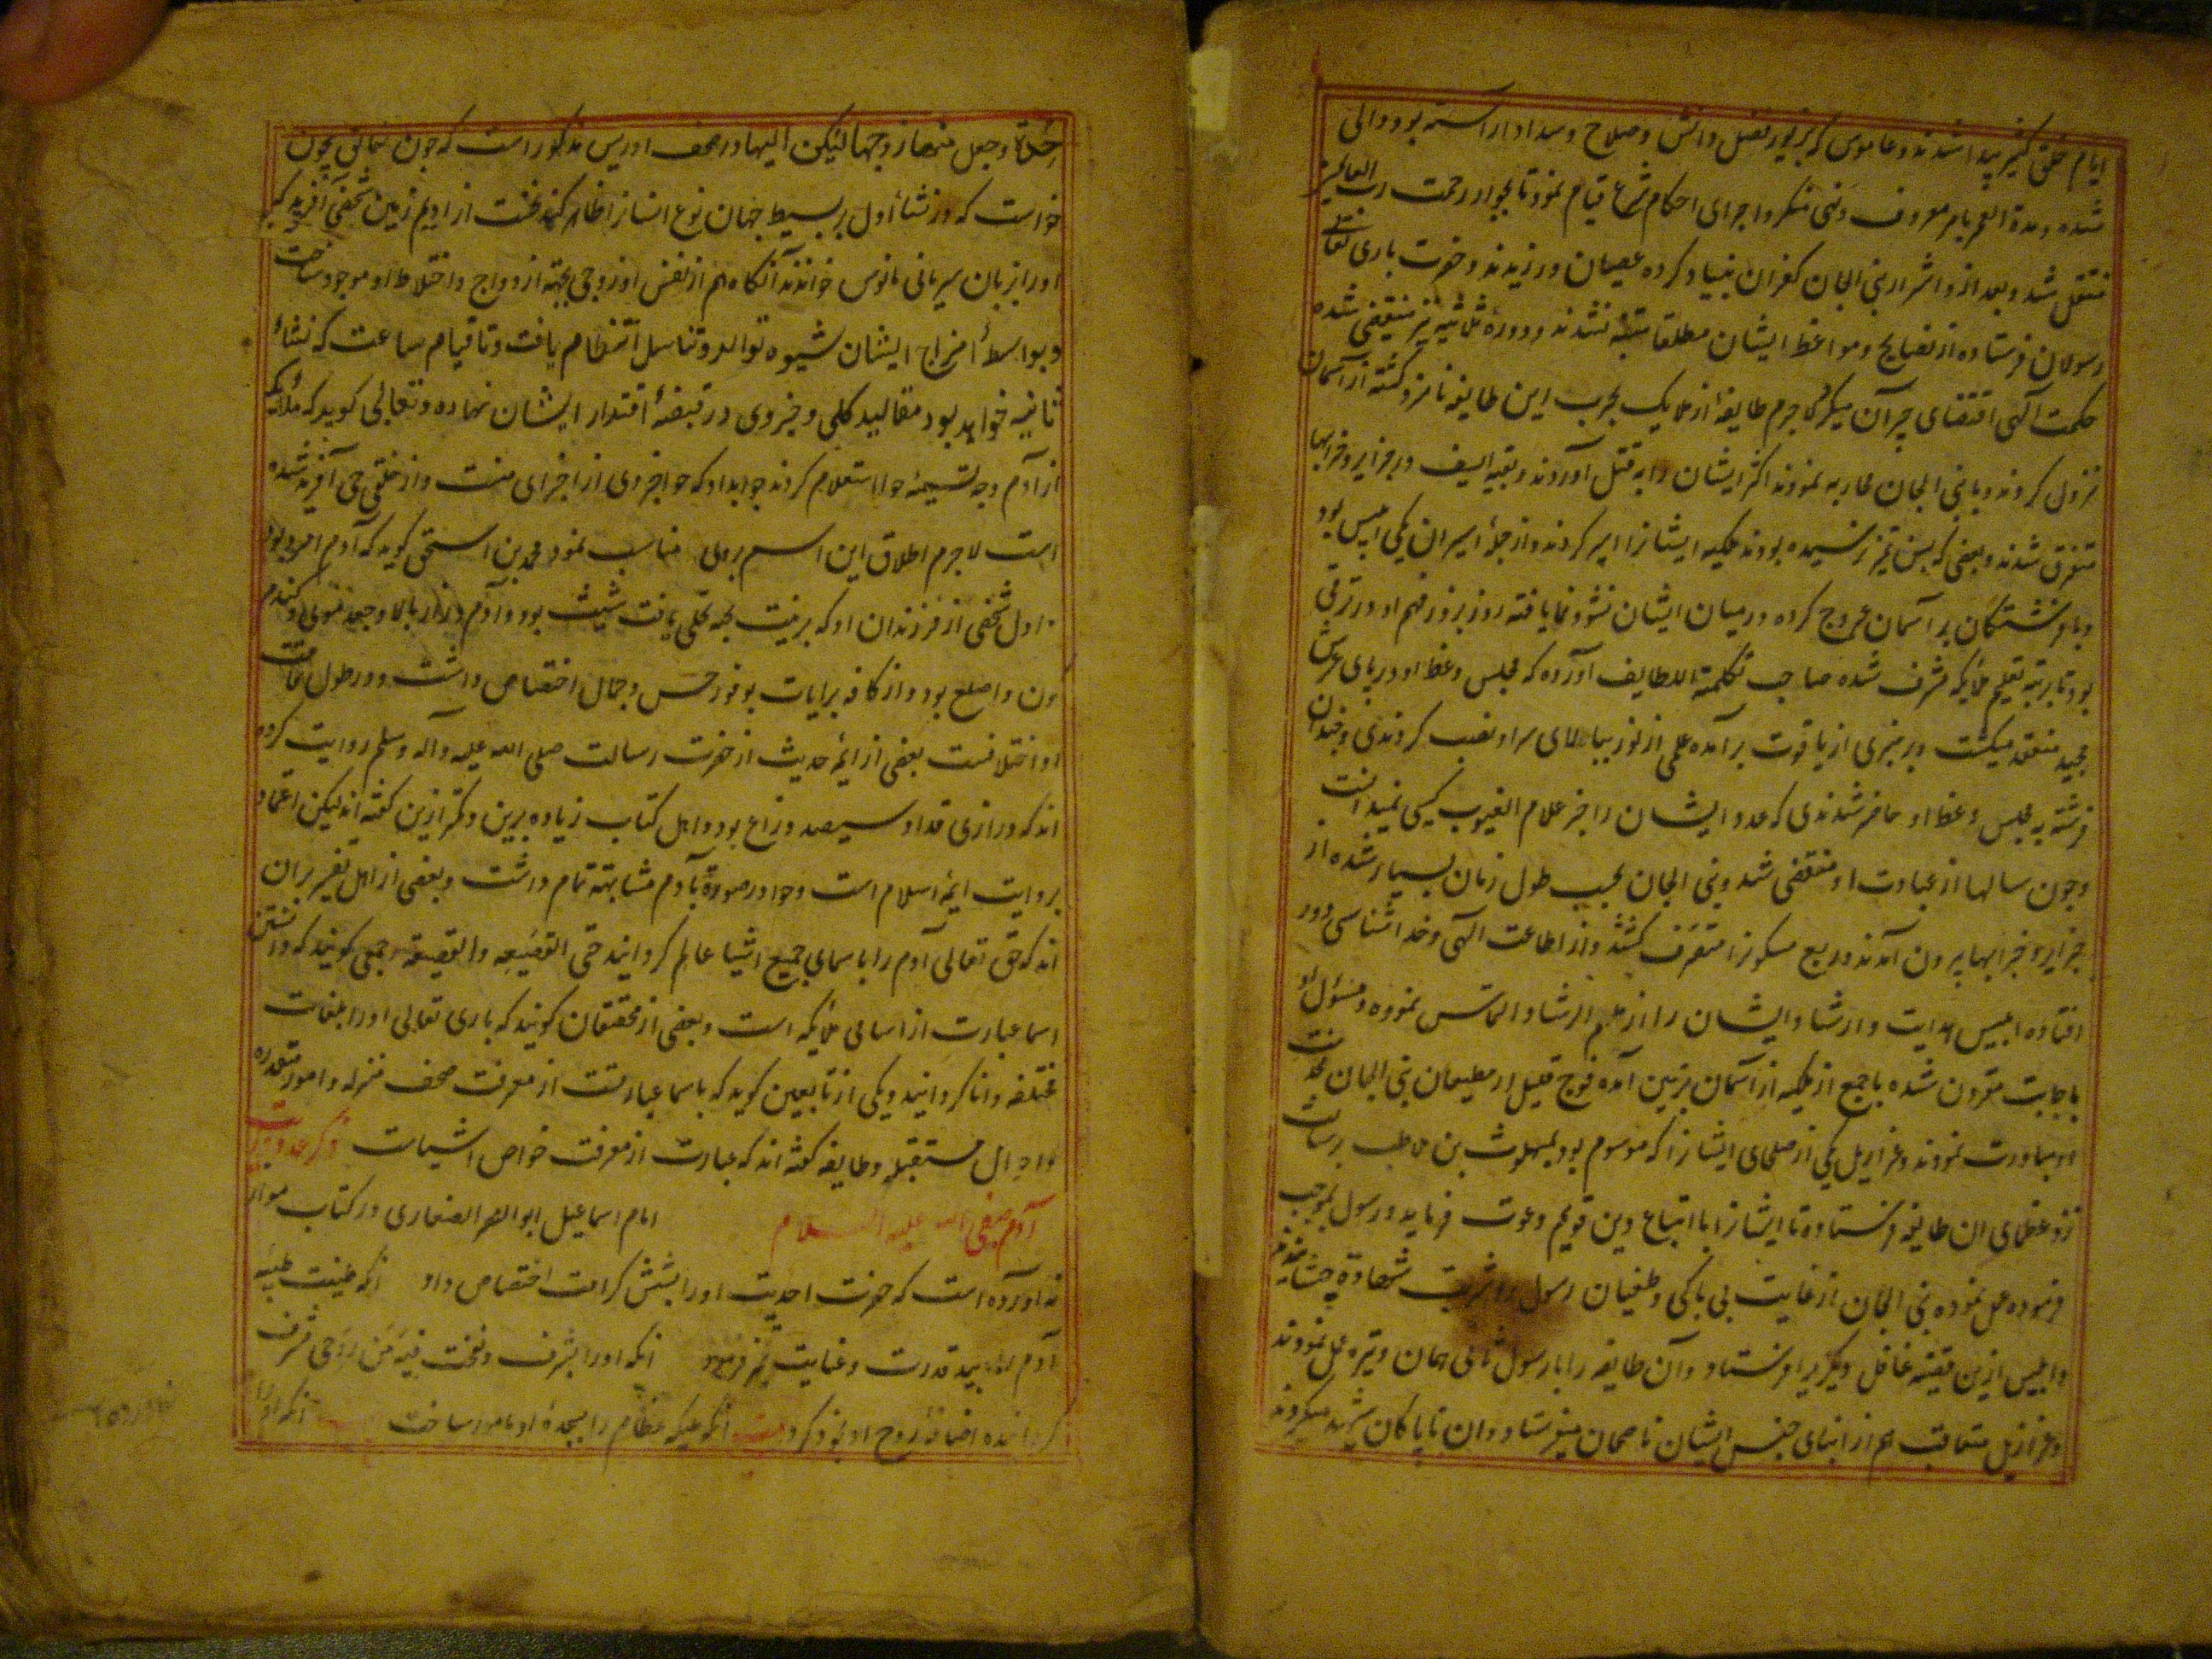 ایام خلق کثیر پیدا شدند و هاموس که بزیور فضل و دانش و صلاح و سداد آراسته بود والی
شده و مدة العمر بامر معروف و نهی منکر و اجرای احکام شرع قیام نمود تا بجوار رحمت رب العالمین
منتقل شد و بعد از و اشرار بنی الجان کفران بنیاد کرده عصیان ورزیدند و حضرت باری تعالی
رسولان فرستاده از نصایح و مواعظ ایشان مطلقا متنبه نشدند و دورهٔ ثلاثیه نیز منقضی شده
حکمت آلهی اقتضای جرم طایفهٔ از ملایک بحرب این طایفه نامزد کشته از آسمان
نزول کردند و با بنی الجان محاربه نمودند اکثر ایشان را به قتل آوردند و بقیه السیف در جزایر و خرابها
متفرق شدند و بعضی که بسن تمیز نرسیده بودند ملیکه ایشانرا اسیر کردند و از جملهٔ اسیران یکی ابلیس بود
و با فرشتکان بر آسمان عروج کرده در میان ایشان نشو و نما یافته روز بروز فهم او در ترقی
بود تا بمرتبه تعلیم ملایکه مشرف شده صاحب تکلمة اللطایف آورده که مجلس وعظ او در پای عرش
مجید منعقد میکشت و بر منبری از یاقوت بر آمده علمی از نور ببالای سر او نصب کردندی و چندان
فرشته به مجلس وعظ او حاضر شدندی که عدد ایشان را جز علام الغیوب کسی نمیدانست
و چون سالها از عبادت او منقضی شد و بنی الجان بحسب طول زمان بسیار شده از
جزایر و خرابها بیرون آمدند و ربع مسکونرا متصرف کشتند و از اطاعت الهی و خدا شناسی دور
افتاده ابلیس هدایت و ارشاد ایشان را از التماس نموده و مسئول او
باجابت مقرون شده با جمع از ملیکه از آسمان بزمین آمده فوج قلیل از مطیعان بنی الجان
مبادرت نمودند و عزازیل یکی از صلحای ایشانرا که موسوم بود بسهلوث بن برسالت
نزد عظمای ان طایفه فرستاده تا ایشانرا با اتباع دین قویم دعوت فرماید و رسول بموجب
فرموده عمل نموده بنی الجان از غایت بی باکی و طغیان رسول را شربت شهادة چشانیدند
و ابلیس ازین قضیه غافل دیگر یرا فرستاد و آن طایفه را با رسول ثانی همان وتیره عمل نمودند
و عزازیل متعاقب هم از ابنای جنس ایشان ناصحان میفرستاد و ان ناپاکان شهید میکردند
و جعل منها زوجها لیسکن الیها و در صحف ادریس مذکور است که چون بیچون
خواست که در نشأ اول بر بسیط جهان نوع انسانرا ظاهر کند نخست از ادیم زمین شخصی آفرید که
اورا بزبان سریانی مانوس خوانند آنکاه هم از نفس او زوجی بجهة ازدواج و اختلاط او موجود ساخت
و بواسطهٔ امزاج ایشان شیوه توالد و تناسل انتظام یافت و تا قیام ساعت که نشأهٔ
ثانیه خواهد بود مقالید کلی و جزوی در قبضهٔ اقتدار ایشان نهاده و تعالی کوید که ملایکه
از آدم وجه تسمیهٔ حوا استعلام کردند جواب داد که حوا جزوی از اجزای منست و از خلقتی حی آفریده شده
است لاجرم اطلاق این اسم بروی مناسب نمود محمد بن اسحق کوید که آدم امرد بود
اول شخصی از فرزندان او که بزینت لحیه تحلی یافت شیث بود و آدم دراز بالا و جعد موی و کندم
ون و اصلع بود و از کافه برایات بوفور حسن و جمال اختصاص داشت و در طول قامت
او اختلافست بعضی از ایمهٔ حدیث از حضرت رسالت صلی الله علیه وآله وسلم روایت کرده
اند که درازی قد او سیصد و زاع بود و اهل کتاب زیاده برین و کمتر ازین کفته اند لیکن اعتماد
بر وایت ایمهٔ اسلام است و حوا در صورة بآدم مشابهة تمام داشت و بعضی از اهل تفسیر بران
اند که حق تعالی آدم را باسمای جمیع اشیا عالم کردانید حتی القصعه والقصیعه و جمعی کویند که دانستن
اسما عبارت از اسامی ملایکه است و بعضی از محققان کویند که باری تعالی اورا بلغات
مختلفه دانا کردانید و یکی از تابعین کوید که باسما عبارتست از معرفت صحف منزله و امور متعدده
و احوال مستقبله و طایفه کفته اند که عبارت از معرفت خواص اشیاست ذکر
آدم صفی الله علیه السلام امام اسماعیل ابو النصر الصفاری در کتاب
آورده است که حضرت احدیت اورا بشش کرامت اختصاص داد انکه طینت طیبه
آدم را بید قدرت و عنایت فرمود انکه اورا بشرف ونفخت فیه من روحی مشرف
کردانیده اضافهٔ روح او بخود کرد انکه ملیکه عظام را بسجدهٔ او مامور ساخت انکه اورا